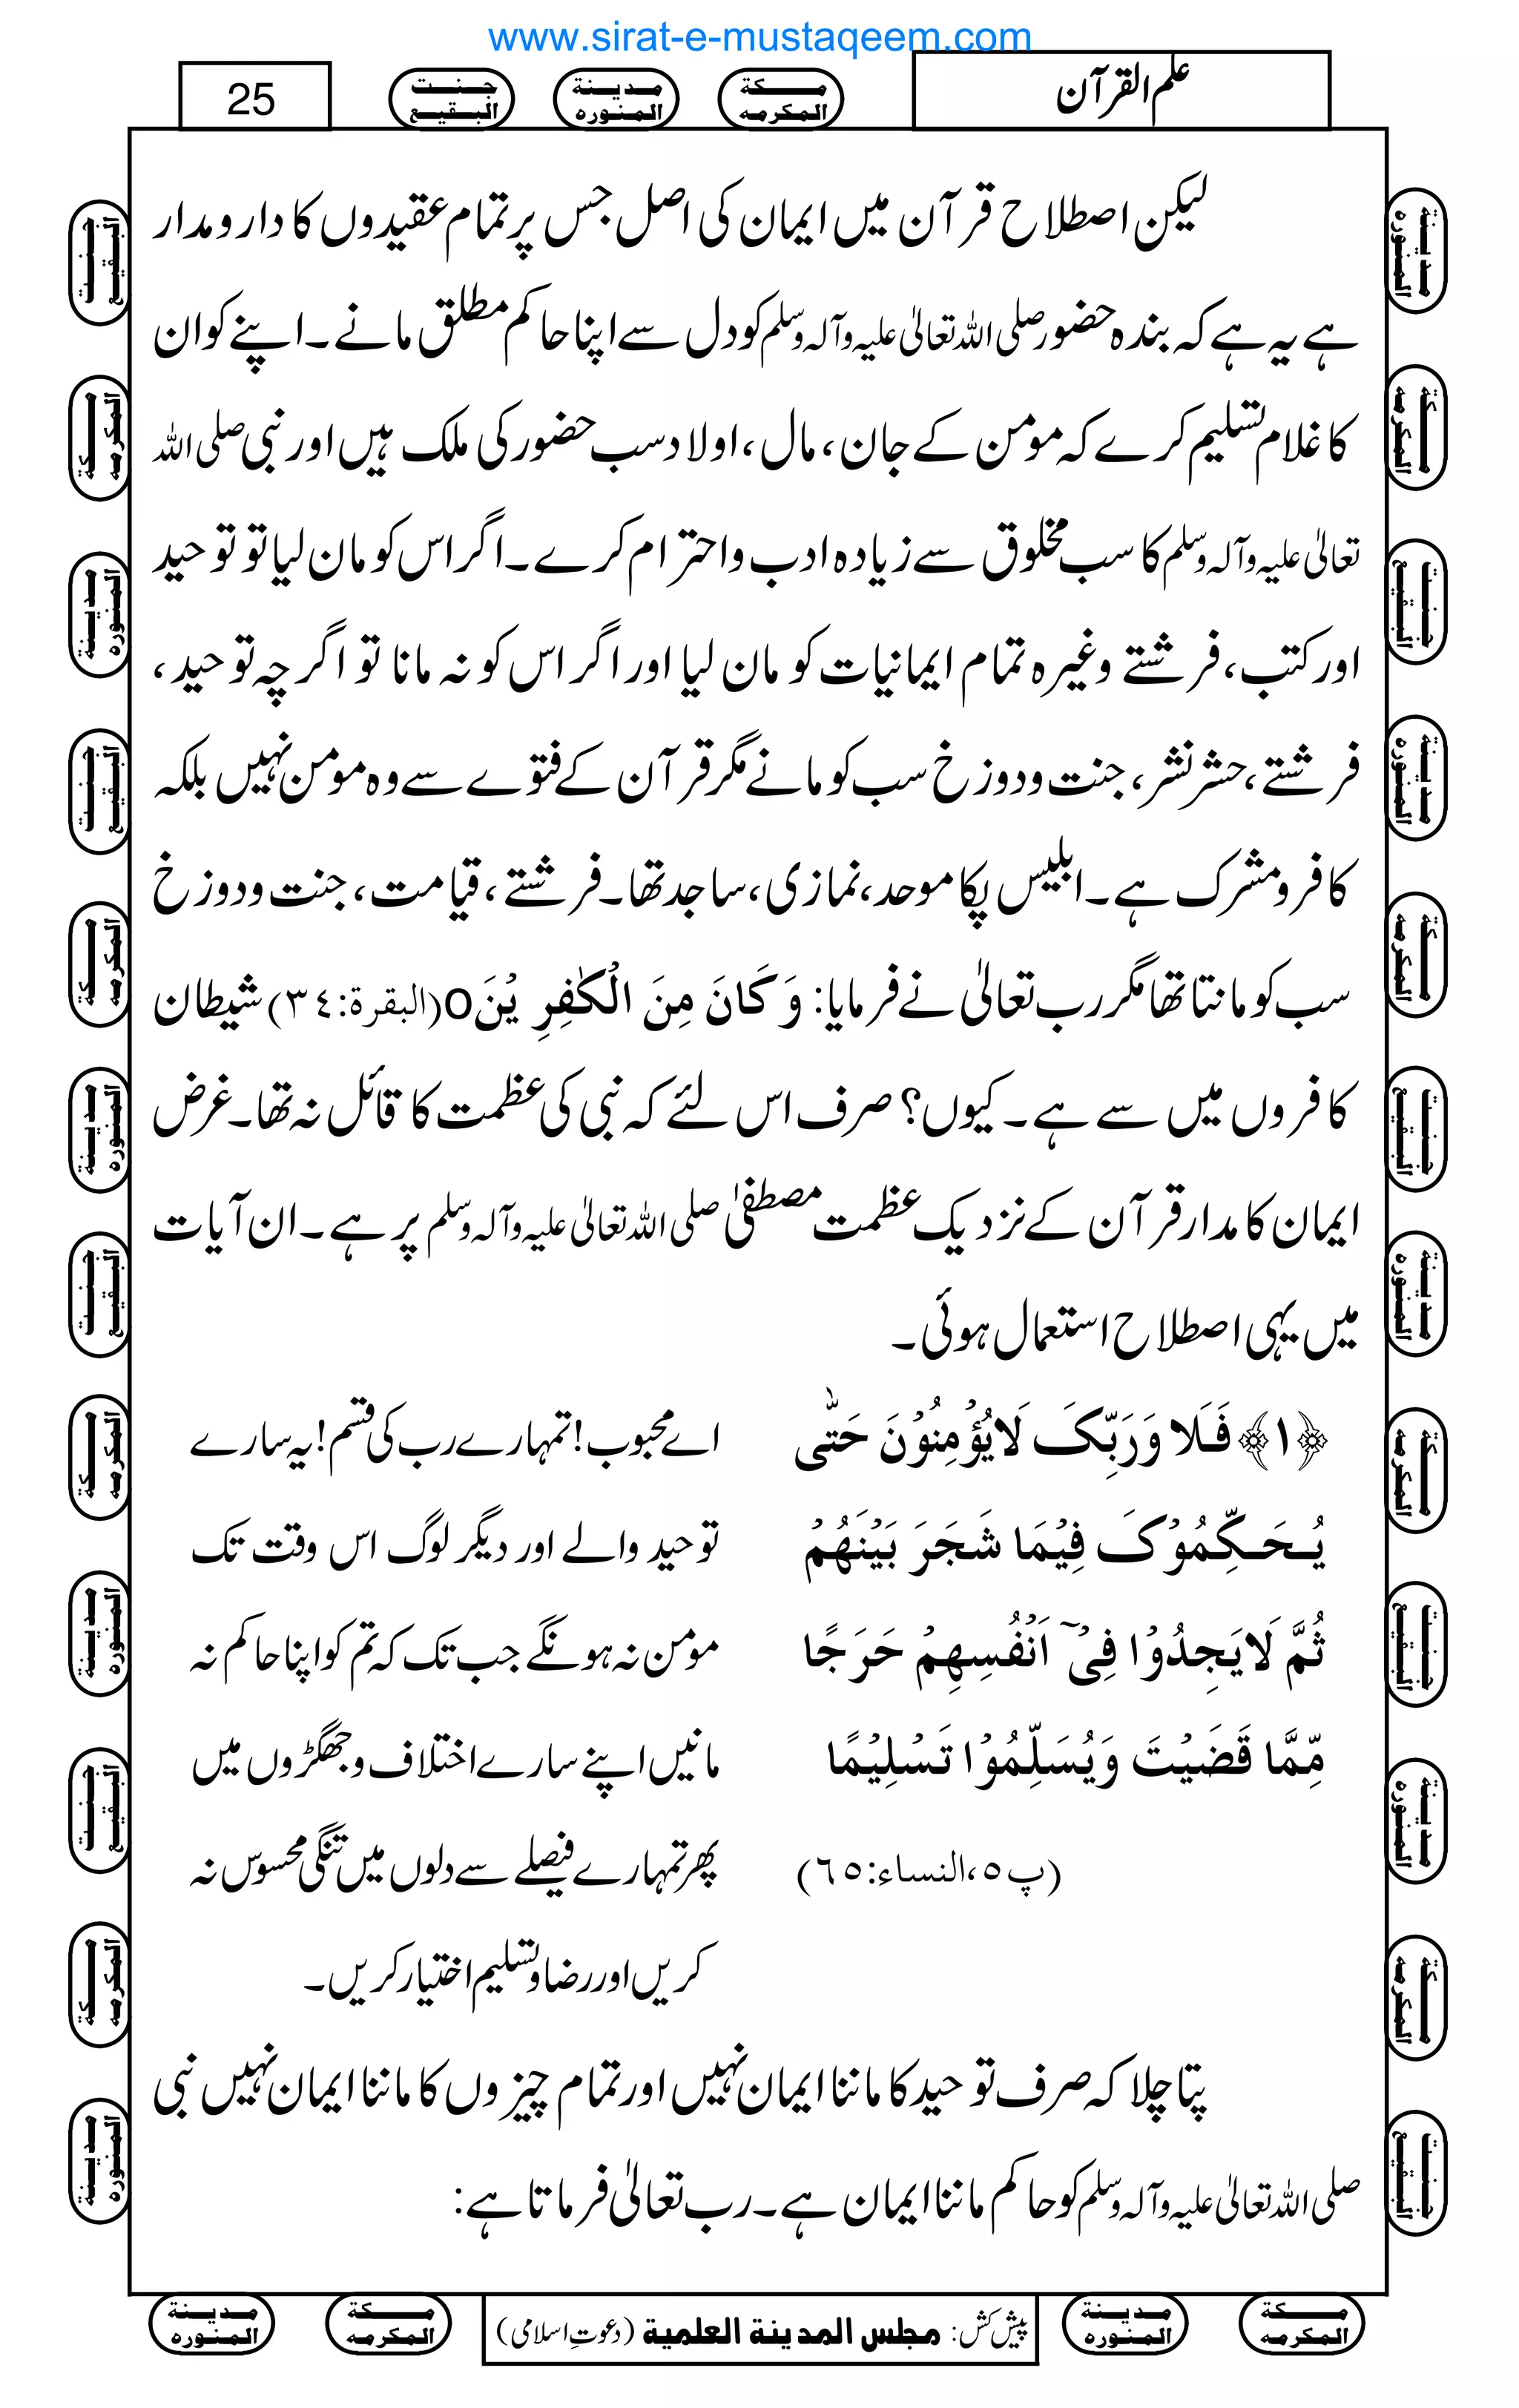 www.sirat-e-mustaqeem.com
علم القرآن
مـكة المكرمه
مدينة المنوره
جنت البقيع
25
لیکن اصطلاح قرآن میں ایمان کی اصل جس پر تمام عقیدوں کا دار و مدار
ہے یہ ہے کہ بندہ حضور صلی اللہ تعالیٰ علیہ وآلہ وسلم کو دل سے اپنا حاکم مطلق مانے۔ اپنے کو ان
کا غلام تسلیم کرے کہ مومن کے جان، مال، اولاد سب حضور کی ملک ہیں اور نبی صلی اللہ
تعالیٰ علیہ وآلہ وسلم کا سب مخلوق سے زیادہ ادب و احترام کرے۔ اگر اس کو مان لیا تو توحید
اور کتب، فرشتے وغیرہ تمام ایمانیات کو مان لیا اور اگر اس کو نہ مانا تو اگرچہ توحید،
فرشتے، حشر نشر، جنت و دوزخ سب کو مانے مگر قرآن کے فتوے سے وہ مومن نہیں بلکہ
کافر و مشرک ہے۔ ابلیس پکا موحد، نمازی، ساجد تھا۔ فرشتے، قیامت، جنت و دوزخ
سب کو مانتا تھا مگر رب تعالیٰ نے فرمایا: وَ کَانَ مِنَ الْکٰفِرِیْنَO (البقرة:٣٤) شیطان
کافروں میں سے ہے۔ کیوں؟ صرف اس لئے کہ نبی کی عظمت کا قائل نہ تھا۔ غرض
ایمان کا مدار قرآن کے نزدیک عظمت مصطفیٰ صلی اللہ تعالیٰ علیہ وآلہ وسلم پر ہے۔ ان آیات
میں یہی اصطلاح استعمال ہوئی۔
﴿۱﴾ فَلَا وَرَبِّکَ لَایُؤْمِنُوْنَ حَتّٰی
یُحَکِّمُوْکَ فِیْمَا شَجَرَ بَیْنَهُمْ
ثُمَّ لَایَجِدُوْا فِیْٓ اَنْفُسِهِمْ حَرَجًا
مِّمَّا قَضَیْتَ وَیُسَلِّمُوْا تَسْلِیْمًا
(پ٥،النساء:٦٥)
اے محبوب! تمہارے رب کی قسم! یہ سارے
توحید والے اور دیگر لوگ اس وقت تک
مومن نہ ہونگے جب تک کہ تم کو اپنا حاکم نہ
مانیں اپنے سارے اختلاف و جھگڑوں میں
پھر تمہارے فیصلے سے دلوں میں تنگی محسوس نہ
کریں اور رضا و تسلیم اختیار کریں۔
پتا چلا کہ صرف توحید کا ماننا ایمان نہیں اور تمام چیزوں کا ماننا ایمان نہیں نبی
صلی اللہ تعالیٰ علیہ وآلہ وسلم کو حاکم ماننا ایمان ہے۔ رب تعالیٰ فرماتا ہے:
مكة المكرمه
مدينة المنوره
پیش کش: مجلس المدینة العلمیة (دعوتِ اسلامی)
مكة المكرمه
مدينة المنوره